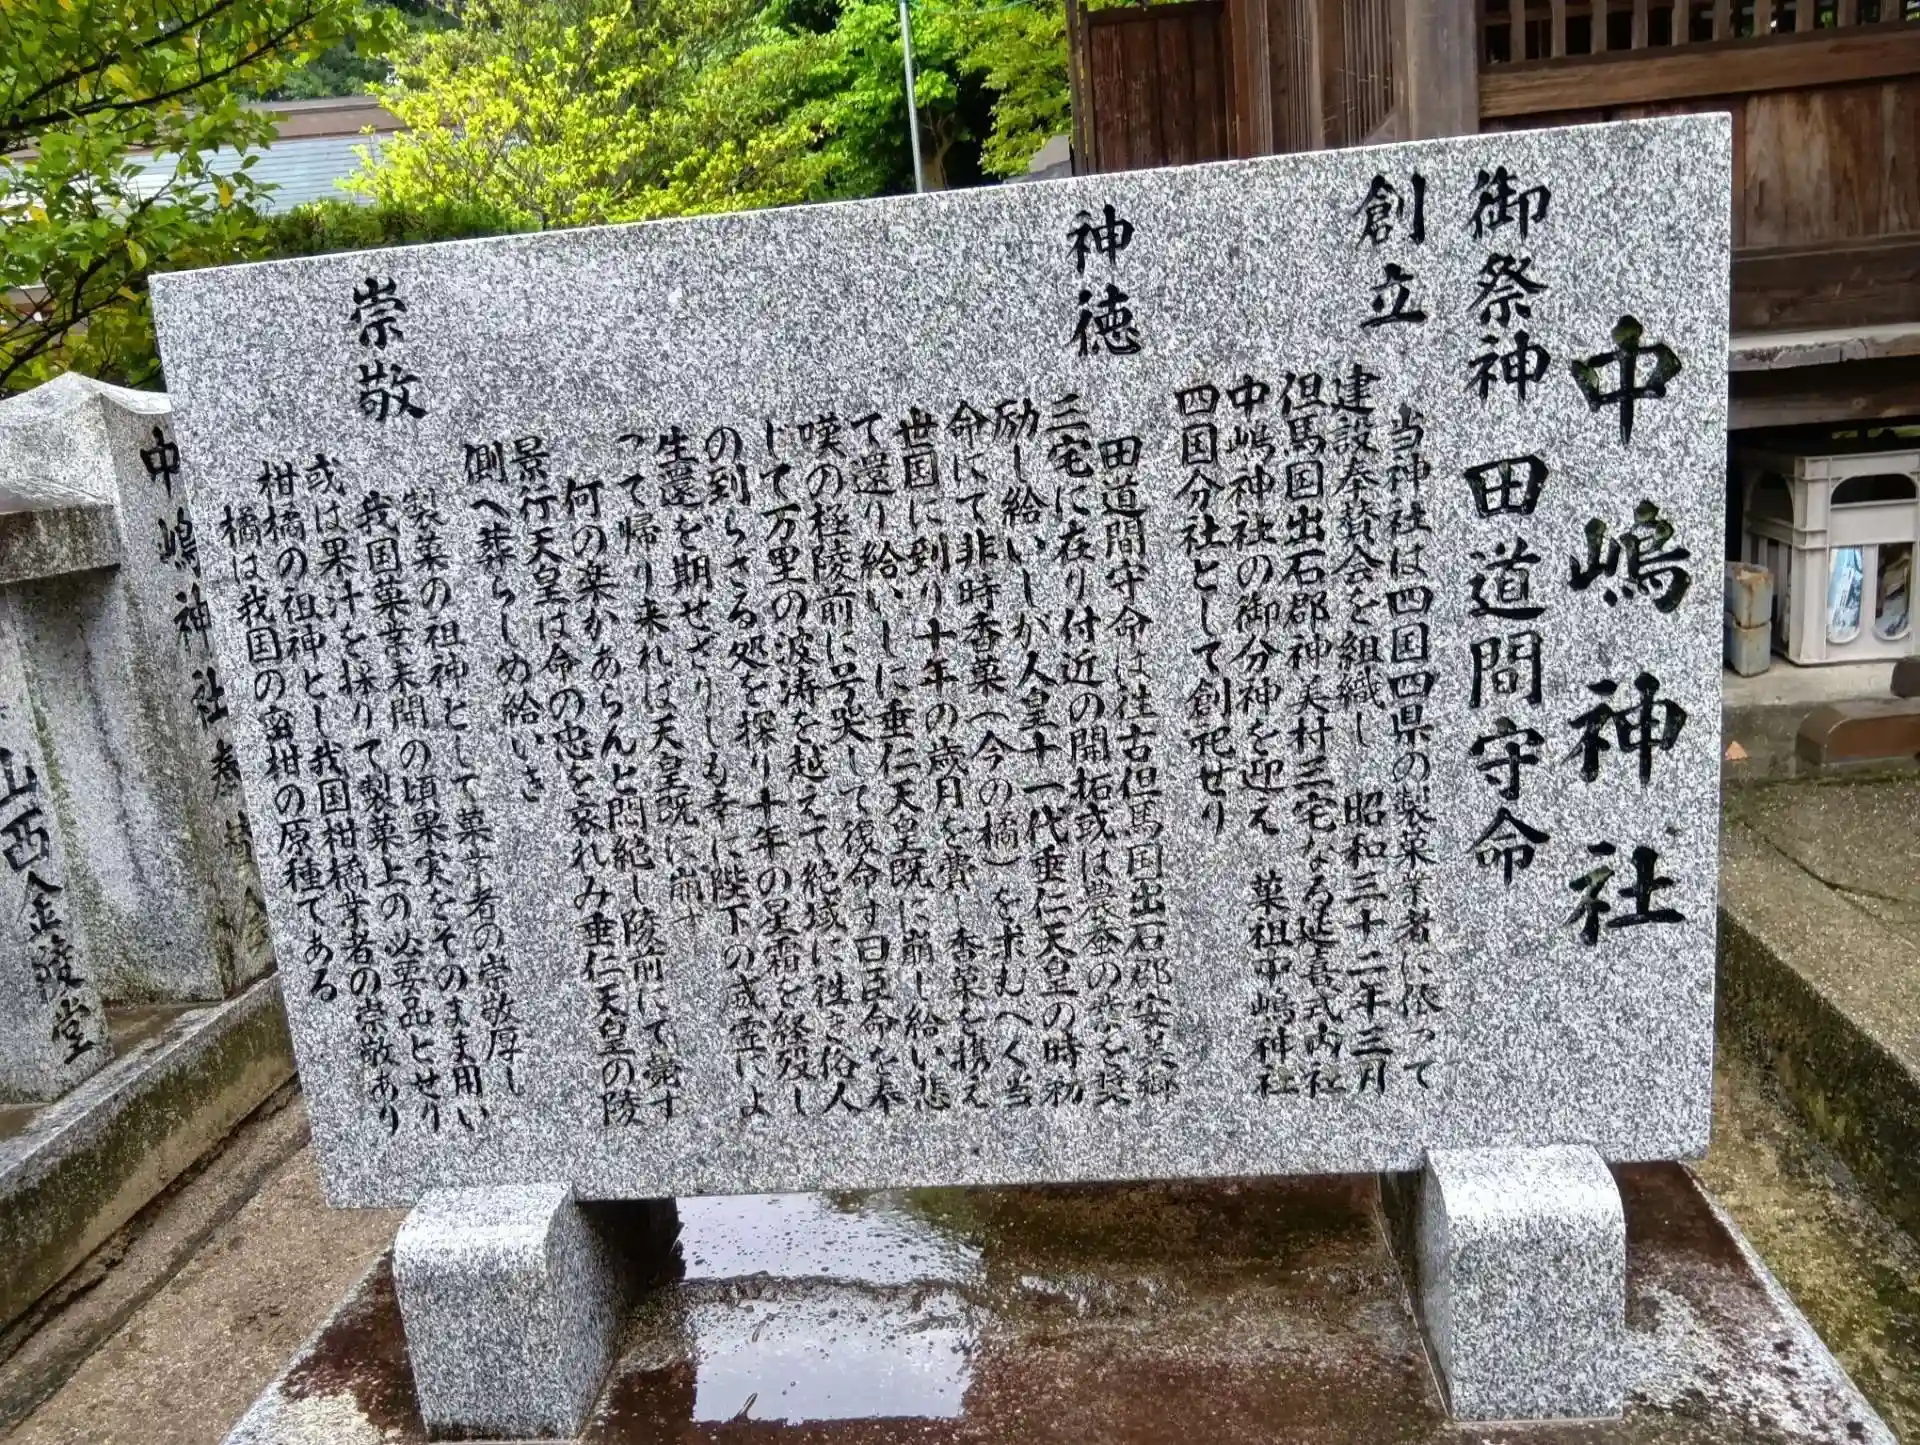 中嶋神社
御祭神 田道間守命
創立
当神社は四国四県の製菓業者に依って
建設奉賛会を組織し 昭和三十二年三月
但馬国出石郡神美村三宅なる延喜式内社
中嶋神社の御分神を迎え 菓祖中嶋神社
四国分社として創祀せり
神徳
田道間守命は往古但馬国出石郡安美郷
三宅に在り付近の開拓或は農蚕の業を奨
励し給いしが人皇十一代垂仁天皇の時勅
命にて非時香菓(今の橘)を求むべく当
世国に到り十年の歳月を費し香菓を携え
て還り給いしに垂仁天皇既に崩し給い悲
嘆の極陵前に号哭して復命す曰臣命を奉
じて万里の波濤を越えて絶域に往き俗人
の到らざる処を探り十年の星霜を経没し
生還を期せざりしも幸に陛下の威霊によ
って帰り来れば天皇既に崩す
何の楽かあらんと悶絶し陵前にて薨す
景行天皇は命の忠を哀れみ垂仁天皇の陵
側へ葬らしめ給いき
崇敬
製菓の祖神として菓子者の崇敬厚し
我国菓子未開の頃果実をそのまま用い
或は果汁を採りて製菓上の必要品とせり
柑橘の祖神とし我国柑橘業者の崇敬あり
橘は我国の蜜柑の原種である
中嶋神社奉
山西金陵堂